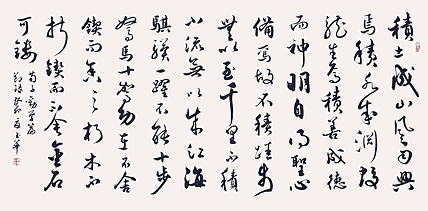 積土成山風雨興
焉積水成淵蛟
龍生焉積善成德
而神明自得聖心
備焉故不積跬步
無以至千里不積
小流無以成江海
騏驥一躍不能十步
駑馬十駕功在不舍
鍥而舍之朽木不
折鍥而不舍金石
可鏤
荀子勸學篇